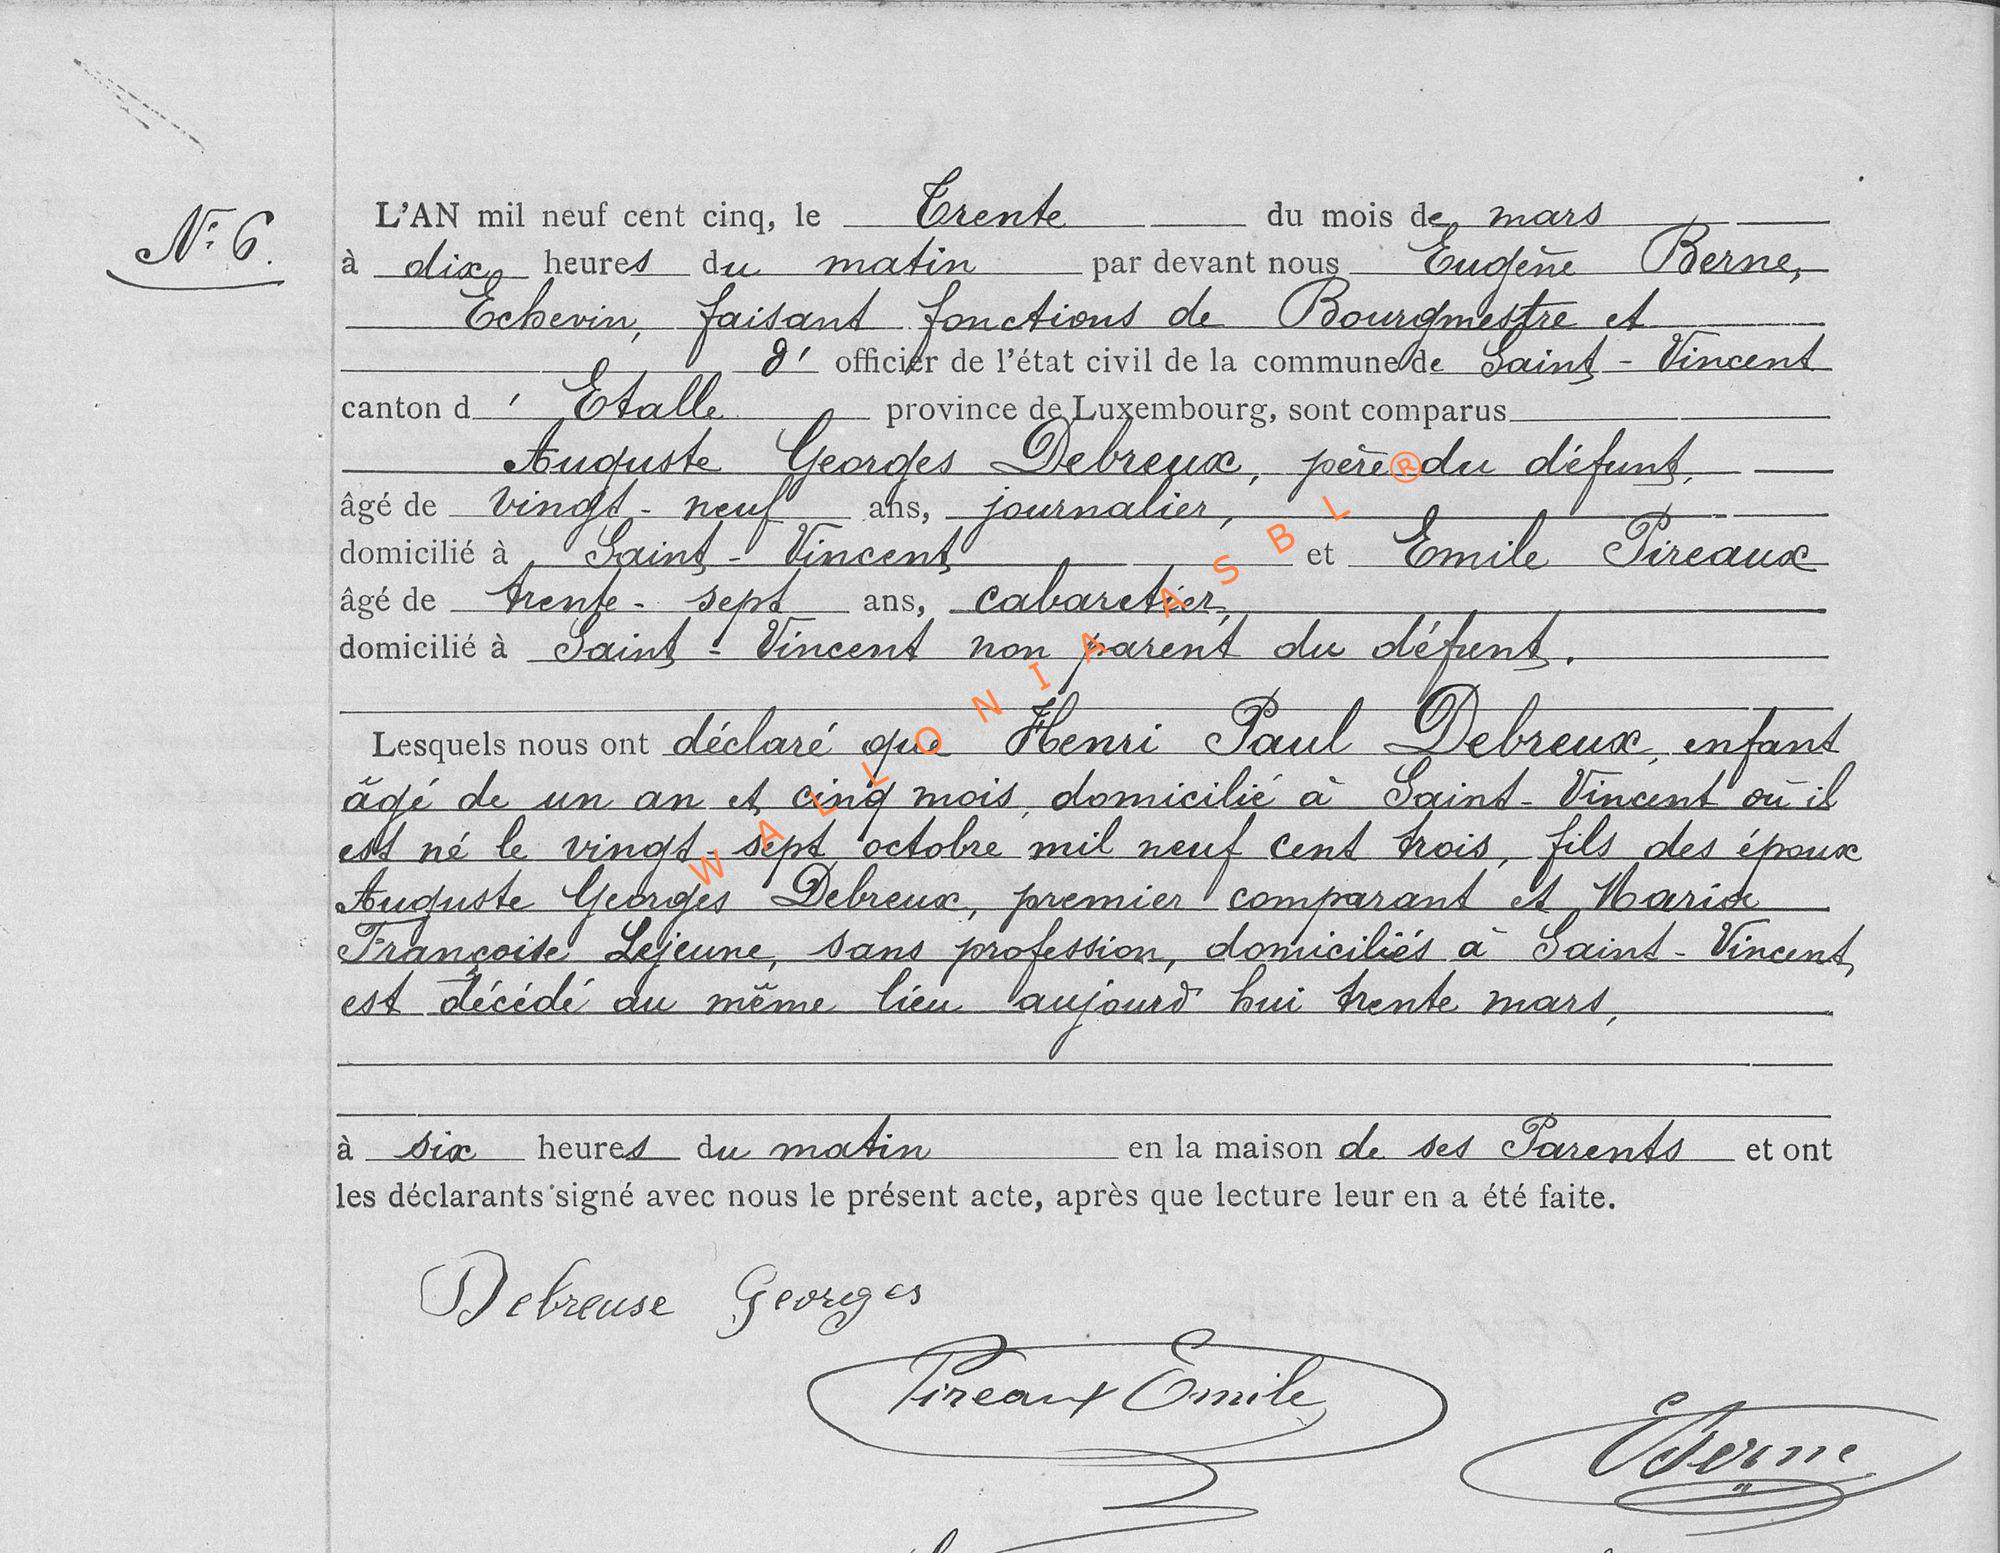 N° 6.
L'AN mil neuf cent cinq, le Trente du mois de mars
à dix heures du matin par devant nous Eugène Berne,
Echevin, faisant fonctions de Bourgmestre et
d' officier de l'état civil de la commune de Saint-Vincent
canton d' Etalle province de Luxembourg, sont comparus
Auguste Georges Debreux, père du défunt,
âgé de vingt-neuf ans, journalier,
domicilié à Saint-Vincent et Emile Pireaux
âgé de trente-sept ans, cabaretier,
domicilié à Saint-Vincent non parent du défunt.
Lesquels nous ont déclaré que Henri Paul Debreux, enfant
âgé de un an et cinq mois, domicilié à Saint-Vincent où il
est né le vingt-sept octobre mil neuf cent trois, fils des époux
Auguste Georges Debreux, premier comparant et Marie
Françoise Lejeune, sans profession, domiciliés à Saint-Vincent,
est décédé au même lieu aujourd'hui trente mars,
à six heures du matin en la maison de ses Parents et ont
les déclarants signé avec nous le présent acte, après que lecture leur en a été faite.
Debreuse Georges
Pireaux Emile
EBerne
WALLONIA ASBL ®